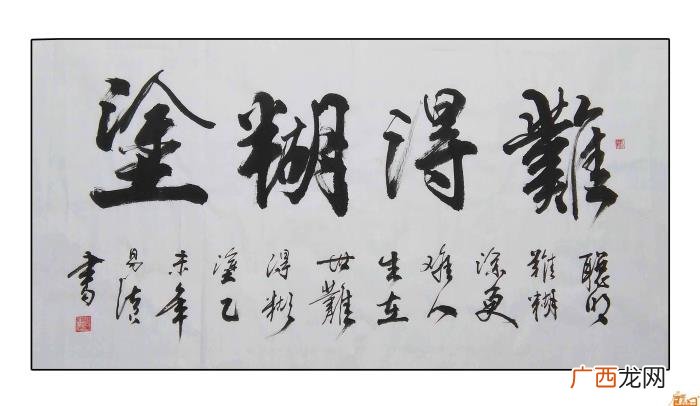 難得糊塗
聰明
難糊
塗更
难人
生在
世難
得糊
塗乙
未年
易
書
广西龙网